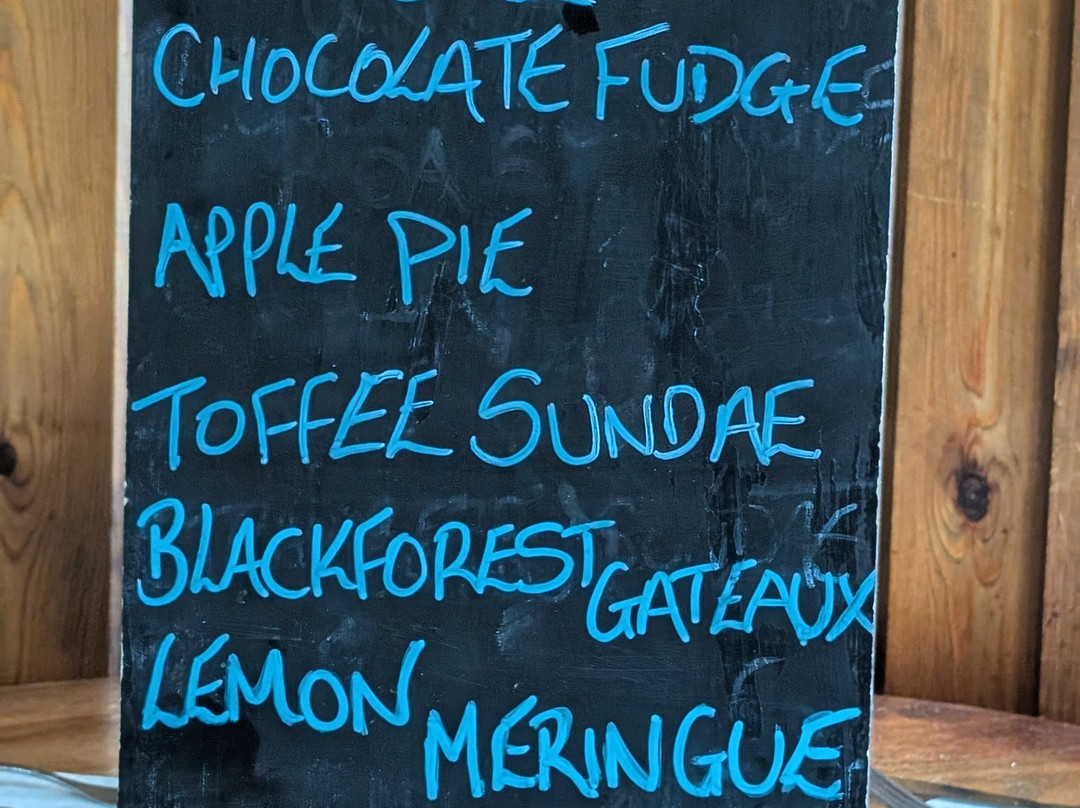 CHOCOLATE FUDGE
APPLE PIE
TOFFEE SUNDAE
BLACKFOREST GATEAUX
LEMON MERINGUE